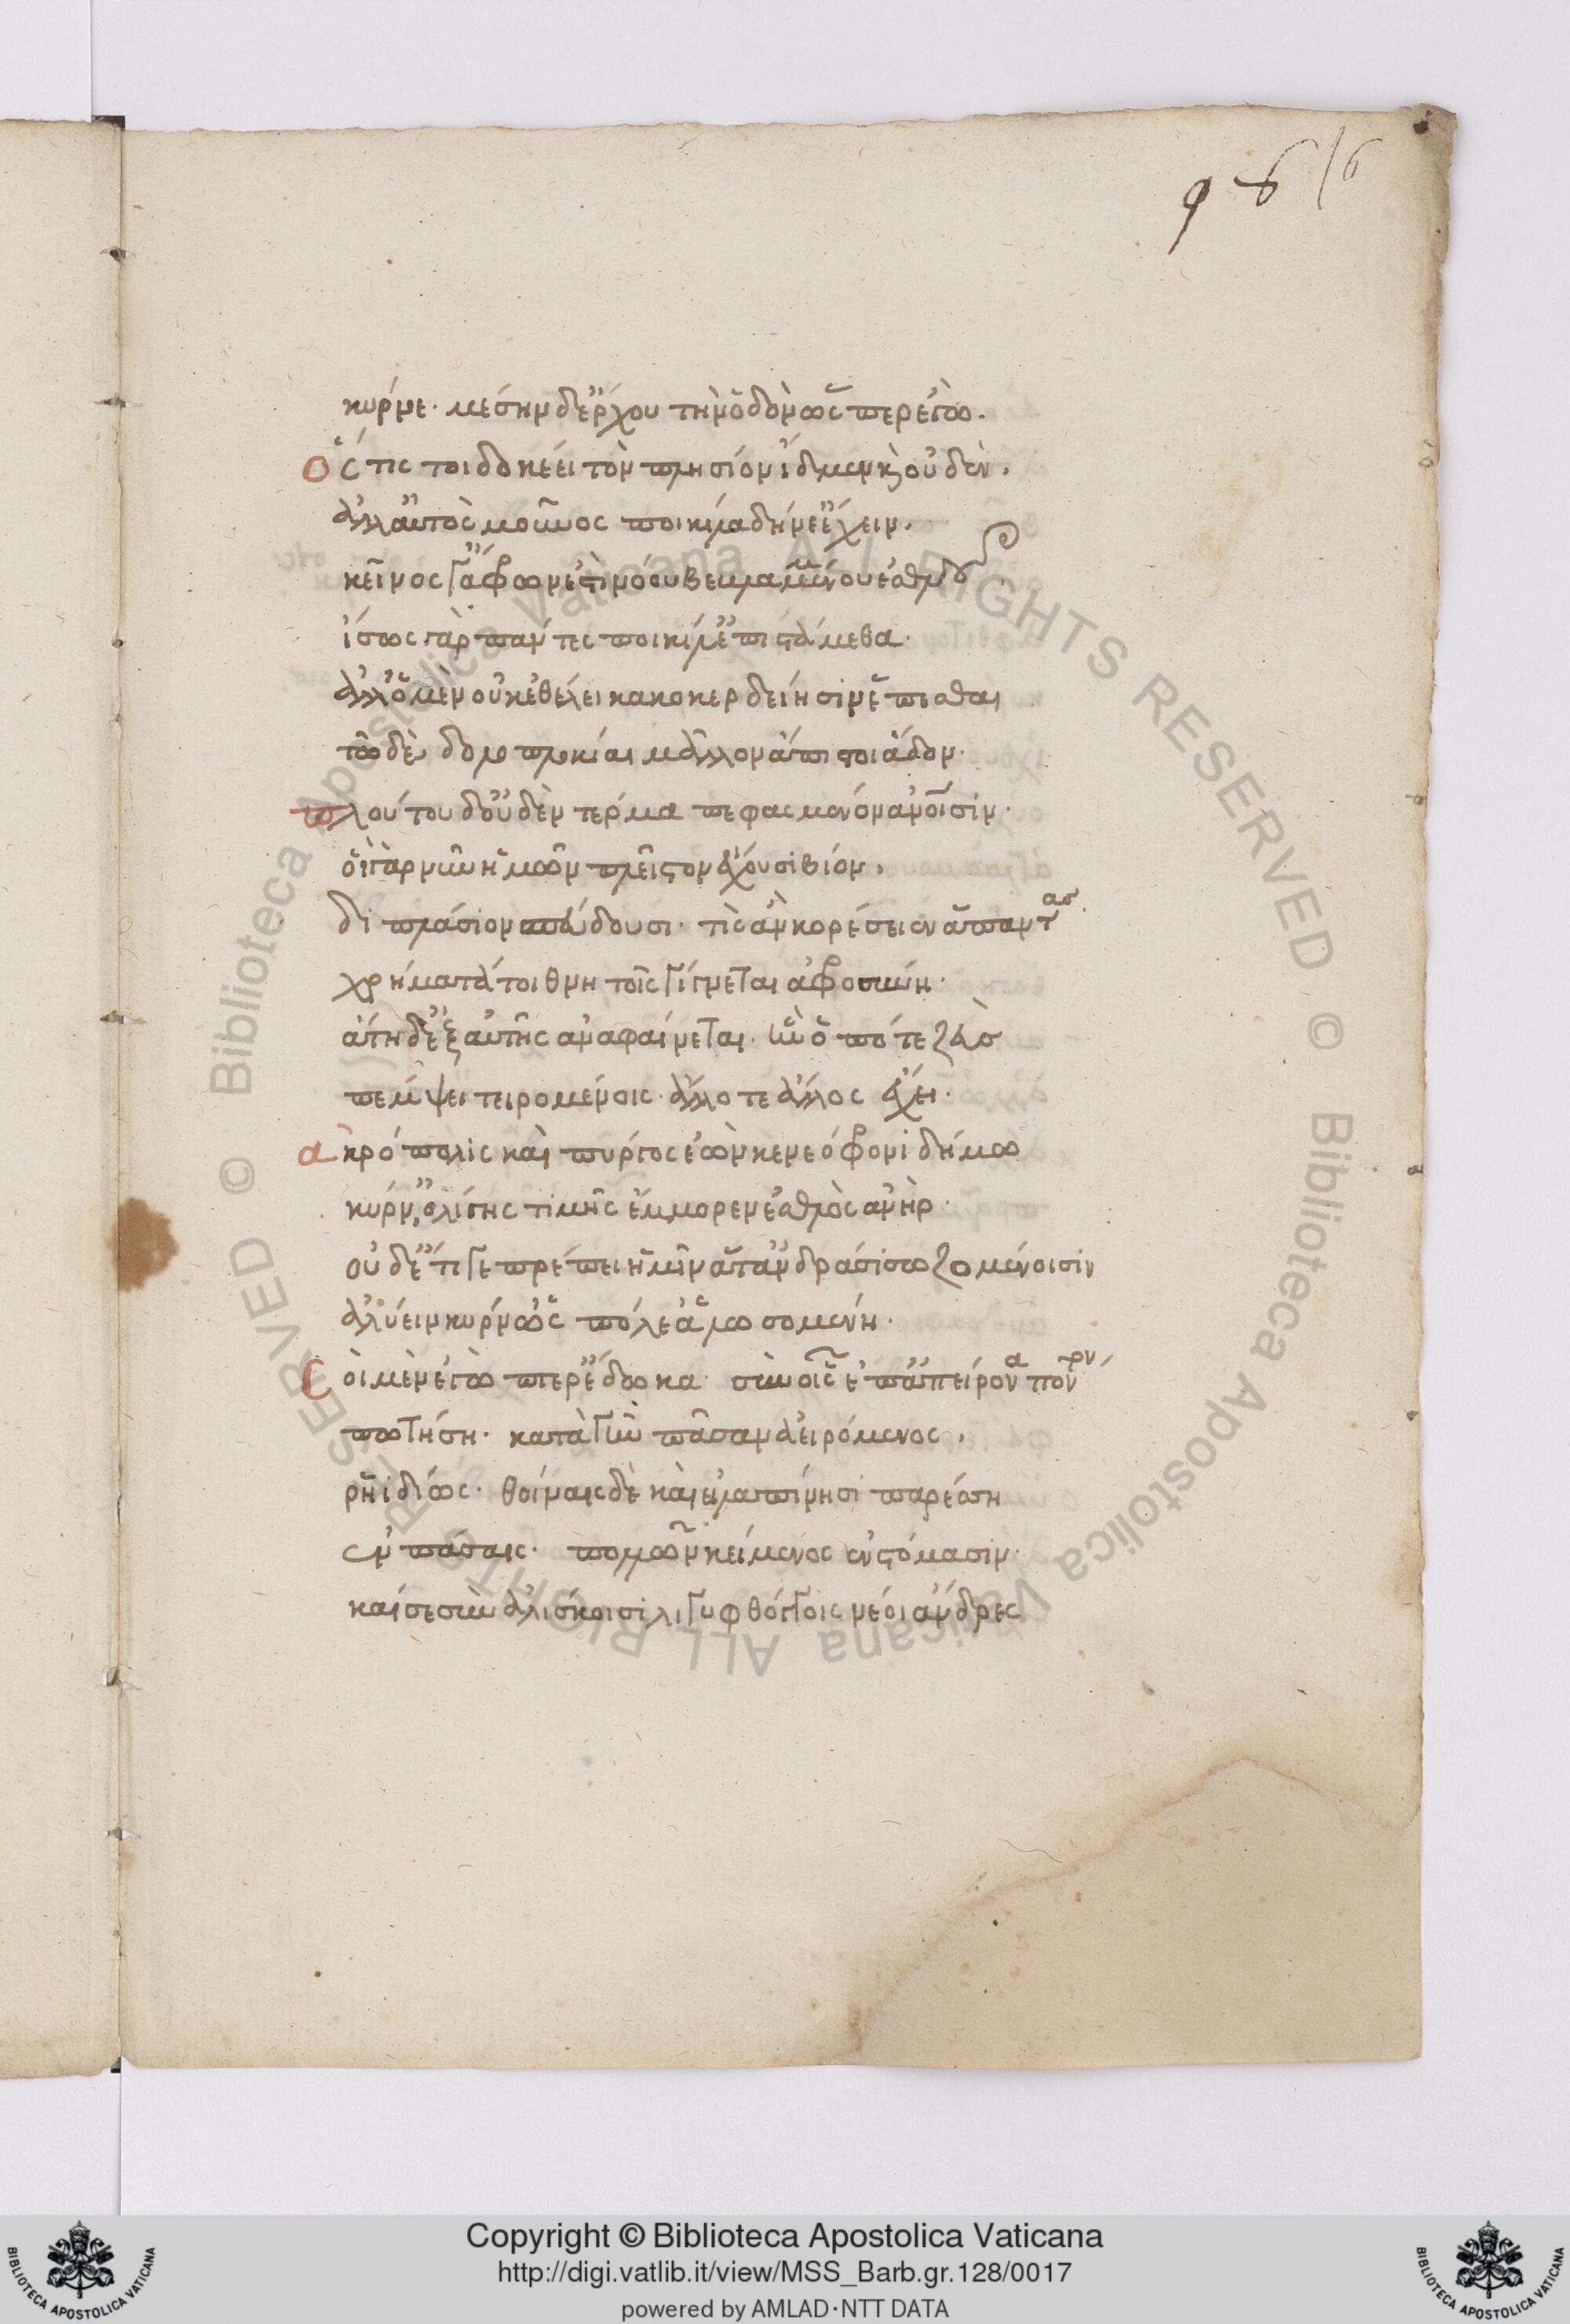 96/6
κύρνε· μέσην δ' ἔρχου τὴν ὁδὸν ὡς περ ἐγώ.
ὅς τις τοι δοκέει τὸν πλησίον ἴδμεν κ οὐδὲν,
ἀλλ' αὐτὸς μοῦνος ποικίλα δήνε' ἔχειν,
κεῖνος γ' ἄφρων ἐστὶ νόου βεβλαμμένου ἐσθλοῦ
ἴσως γὰρ πάντες ποικίλ' ἐπιστάμεθα·
ἀλλ' ὁ μὲν οὐκ ἐθέλει κακοκερδείησιν ἕπεσθαι
τῶ δὲ δολοπλοκίαι μᾶλλον ἄπιστοι ἅδον·
πλούτου δ' οὐδὲν τέρμα πεφασμένον ἀνοῖσιν·
οἳ γὰρ νῦν ἡμῶν πλεῖστον ἔχουσι βίον,
διπλάσιον σπεύδουσι· τίς ἂν κορέσειεν ἅπαντας·
χρήματά τοι θνητοῖς γίγνεται ἀφροσύνη·
ἄτη δ' ἐξ αὐτῆς ἀναφαίνεται· ἣν ὁπότε ζεὺς
πέμψει τειρομένοις· ἄλλοτε ἄλλος ἔχει·
ἀκρόπολις καὶ πύργος ἐὼν κενεόφρονι δήμω
κύρν', ὀλίγης τιμῆς ἔμμορεν ἐσθλὸς ἀνὴρ·
οὐδ' ἔτι γε πρέπει ἡμῖν ἅτ' ἀνδράσι σωζομένοισιν
ἀλύειν κύρν' ὡς πόλε' ἁλωσομένη.
σοὶ μὲν ἐγὼ πτερ' ἔδωκα· σὺν οἷς ἐπ' ἀπείρονα πόντον
πωτήση· κατὰ γῆν πᾶσαν ἀειρόμενος,
ῥηιδίως· θοίναις δὲ καὶ εἰλαπίνησι παρέσση
ἐν πάσαις· πολλῶν κείμενος ἐν στόμασιν·
καί σε σὺν αὐλίσκοισι λιγυφθόγγοις νέοι ἄνδρες
Copyright © Biblioteca Apostolica Vaticana
http://digi.vatlib.it/view/MSS_Barb.gr.128/0017
powered by AMLAD·NTT DATA
BIBLIOTECA APOSTOLICA VATICANA
BIBLIOTECA APOSTOLICA VATICANA
Biblioteca Apostolica Vaticana ALL RIGHTS RESERVED ©
Biblioteca Apostolica Vaticana ALL RIGHTS RESERVED ©